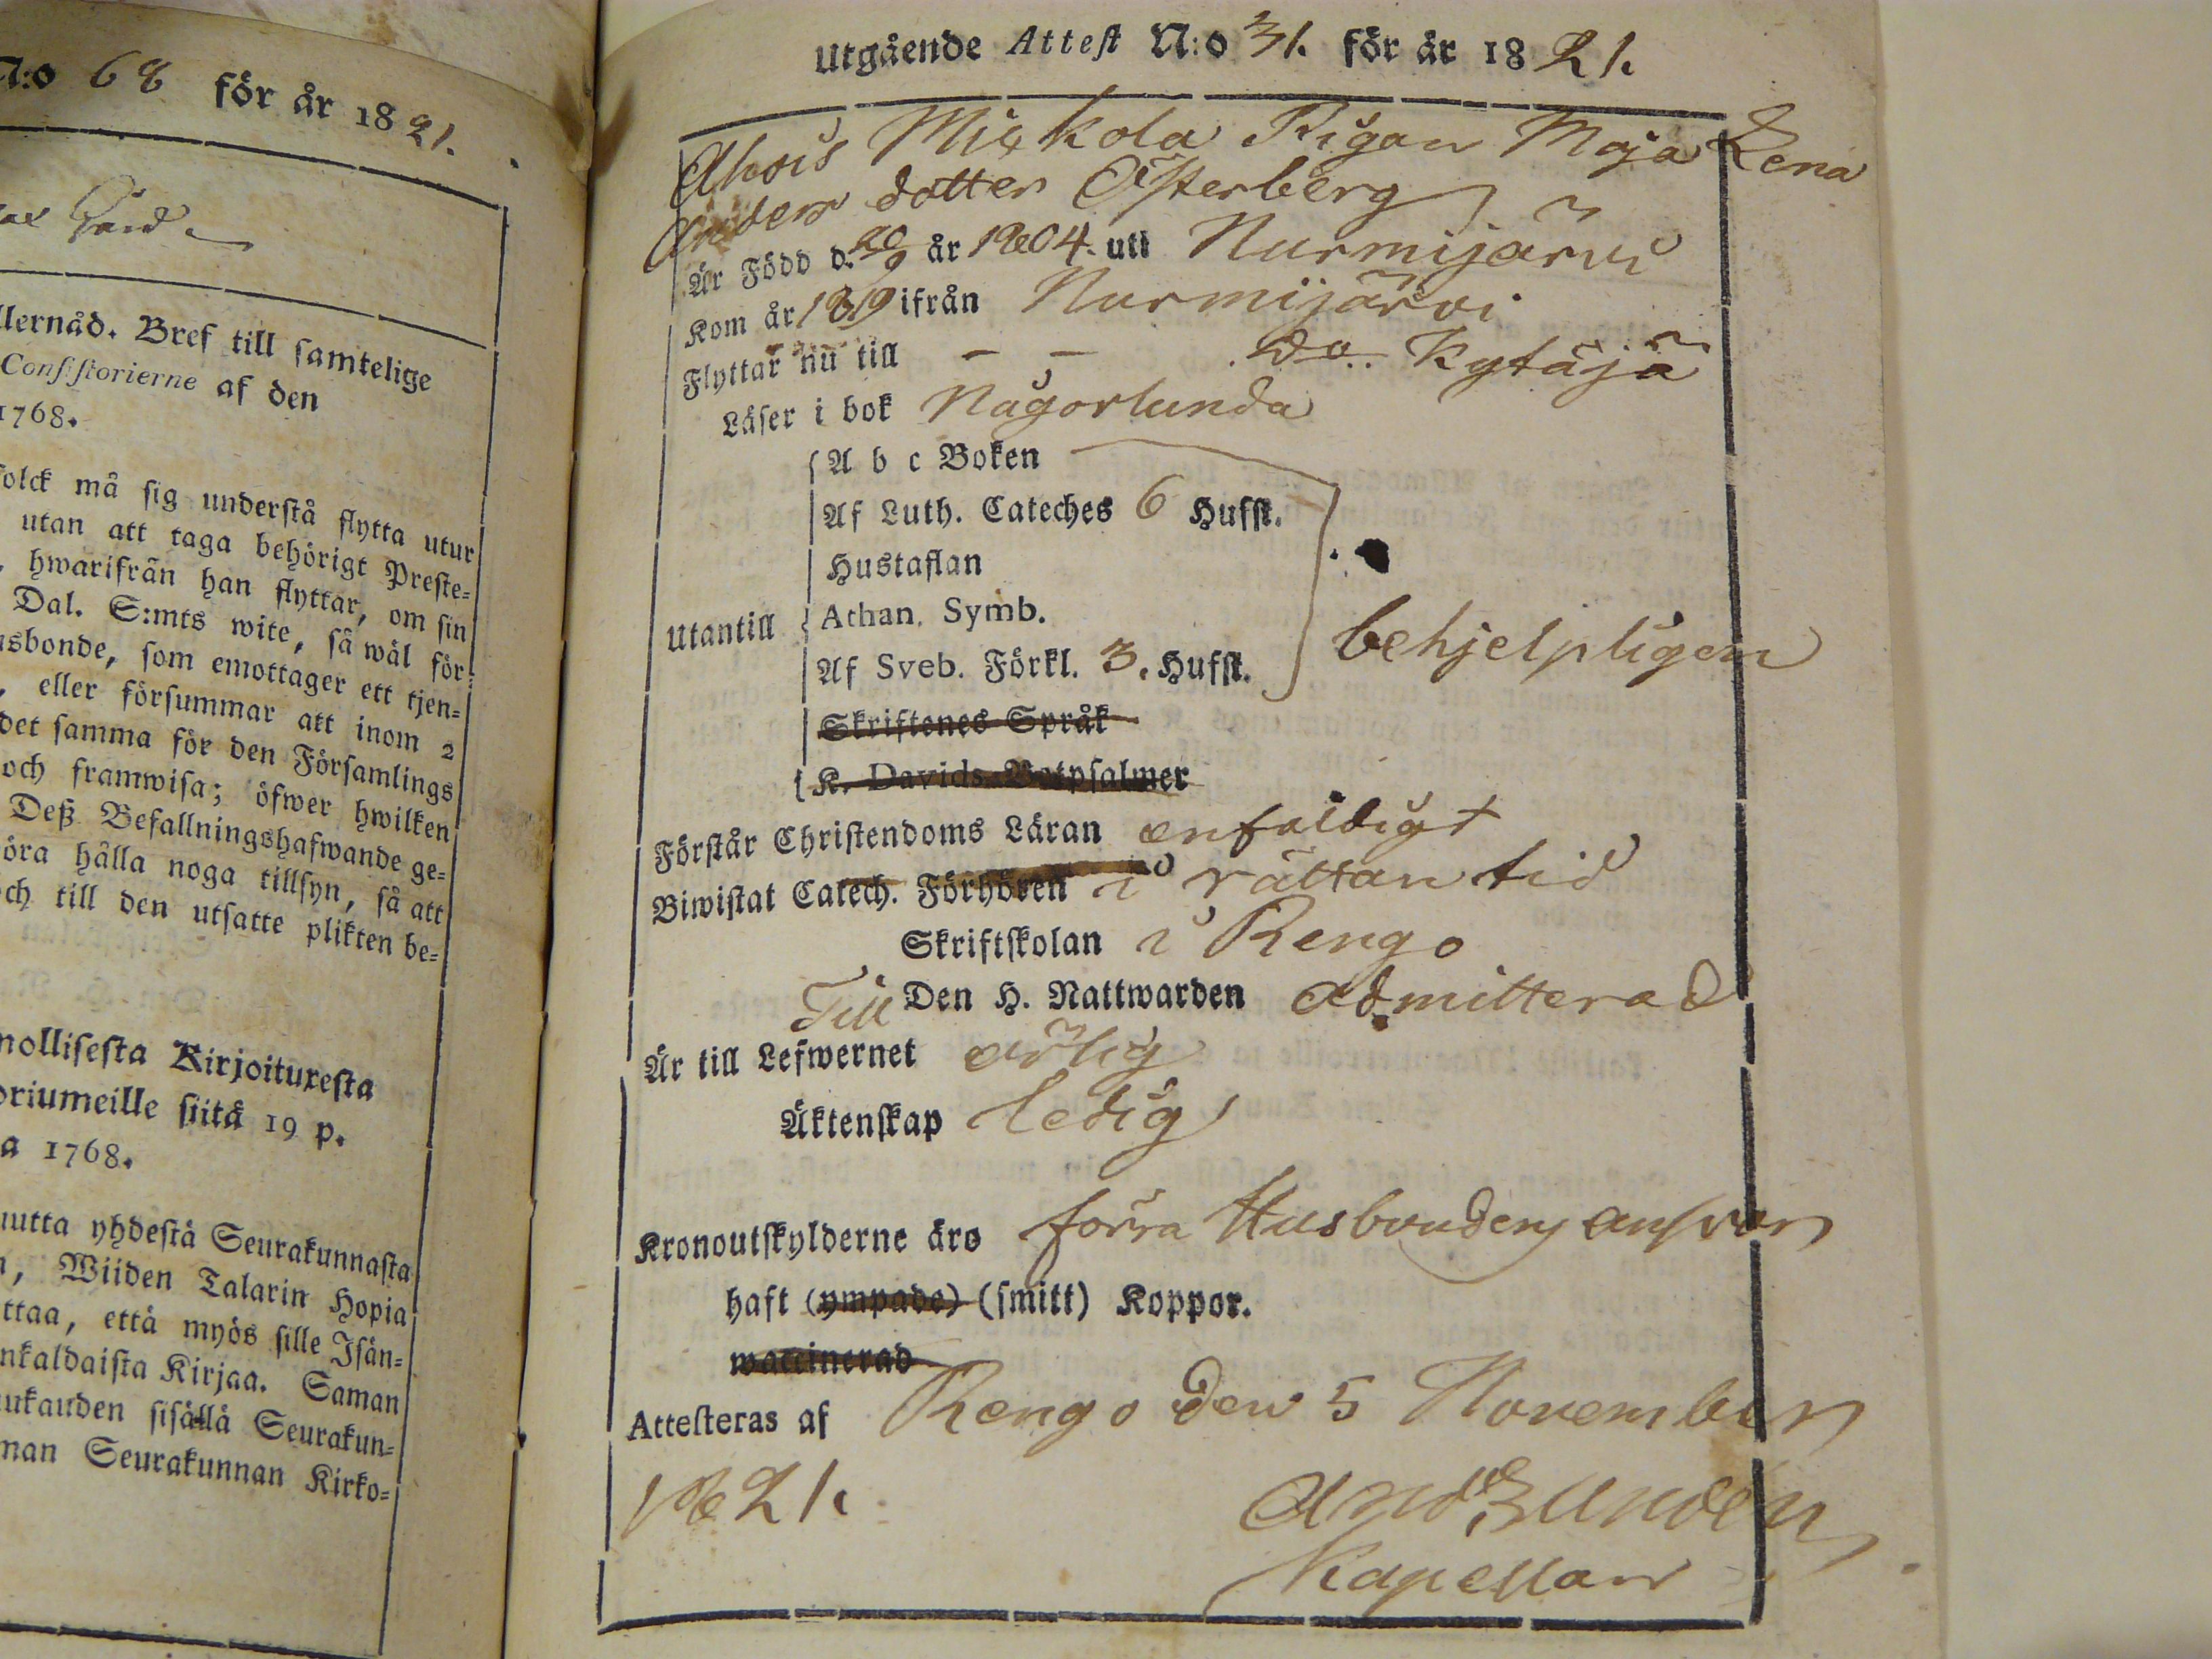 N:o 68 för år 1821.
Gård
llernåd. Bref till samtelige
Consistorierne af den
1768.
folck må sig understå flytta utur
utan att taga behörigt Preste=
, hwarifrån han flyttar, om sin
Dal. S:mts wite, så wäl för=
usbonde, som emottager ett tjen=
, eller försummar att inom 2
det samma för den Församlings
och framwisa; öfwer hwilken
Deß Befallningshafwande ge=
öra hålla noga tillsyn, så att
och till den utsatte plikten be=
nollisesta Kirjoituxesta
oriumeille siitä 19 p.
a 1768.
uutta yhdestä Seurakunnasta
n, Wiiden Talarin Hopia
ttaa, että myös sille Isän=
nkaldaista Kirjaa. Saman
ukauden sisällä Seurakun=
man Seurakunnan Kirko=
Utgående Attest N:o 31. för år 1821.
Ahois Mickola Pigan Maja Lena
Anders dotter Österberg
Är Född d. 20/9 år 1804. uti Nurmijärvi
Kom år 1819 ifrån Nurmijärvi
Flyttar nu till - - do. Kytäjä
Läser i bok Någorlunda
A b c Boken
Af Luth. Cateches 6 Hufst.
Hustaflan
Utantill Athan. Symb.
Af Sveb. Förkl. 3. Hufst. behjelpligen
Skriftenes Språk
K. Davids Botpsalmer
Förstår Christendoms Läran enfaldigt
Biwistat Catech. Förhören i rättan tid
Skriftskolan i Rengo
Till Den H. Nattwarden admitterad
Är till Lefwernet ärlig
Äktenskap ledig
Kronoutskylderne äro förra Husbondens answar
haft (ympade) (smitt) Koppor.
waccinerad
Attesteras af Rengo den 5 November
1821.
Kapellan